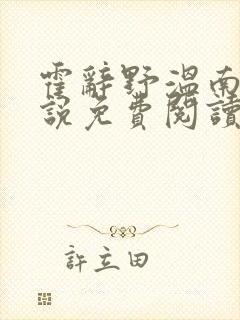 霍辭野溫南
說免費閱讀
許立田